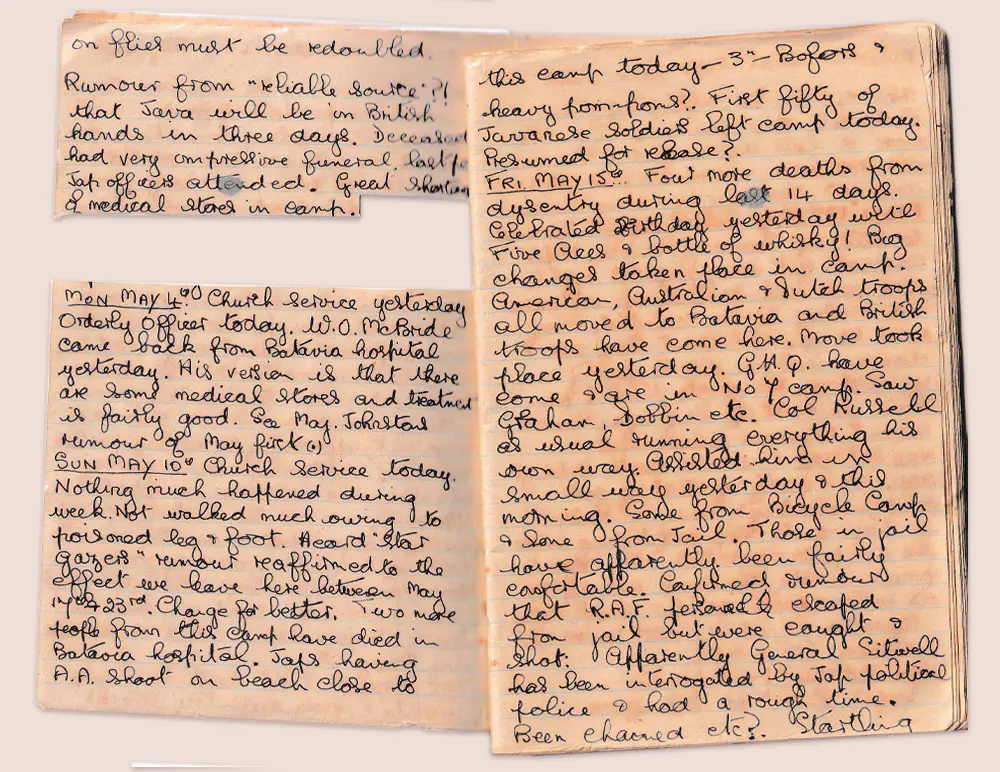 on flies must be redoubled.
Rumour from "reliable source"?!
that Java will be in British
hands in three days. Deceased
had very impressive funeral.
Jap officers attended. Great
of medical stores in camp.
MON MAY 4th Church service yesterday
Orderly Officer today. W.O. McBride
came back from Batavia hospital
yesterday. His version is that there
are some medical stores and treatment
is fairly good. See Maj. Johnstons
rumour of May first (1)
SUN MAY 10th Church service today.
Nothing much happened during
week. Not walked much owing to
poisoned leg & foot. Heard "Star
gazers" rumour reaffirmed to the
effect we leave here between May
17th & 23rd. Change for better. Two more
people from this camp have died in
Batavia hospital. Japs having
A.A. shoot on beach close to
this camp today – 3" – Bofors &
heavy pom-poms?. First fifty of
Javanese soldiers left camp today.
Presumed for release?.
FRI. MAY 15th. Four more deaths from
dysentry during last 14 days.
Celebrated Birthday yesterday with
Five Aces & bottle of whisky! Big
changes taken place in camp.
American, Australian & Dutch troops
all moved to Batavia and British
troops have come here. Move took
place yesterday. G.H.Q. have
come & are in No 7 camp. Saw
Graham, Dobbin etc. Col Russell
as usual running everything his
own way. Assisted him in
small way yesterday & this
morning. Some from Bicycle Camp
& some from Jail. Those in jail
have apparently been fairly
comfortable. Confirmed rumour
that R.A.F. personnel escaped
from jail but were caught &
shot. Apparently General Sitwell
has been interrogated by Jap political
police & had a rough time.
Been chained etc?. Startling